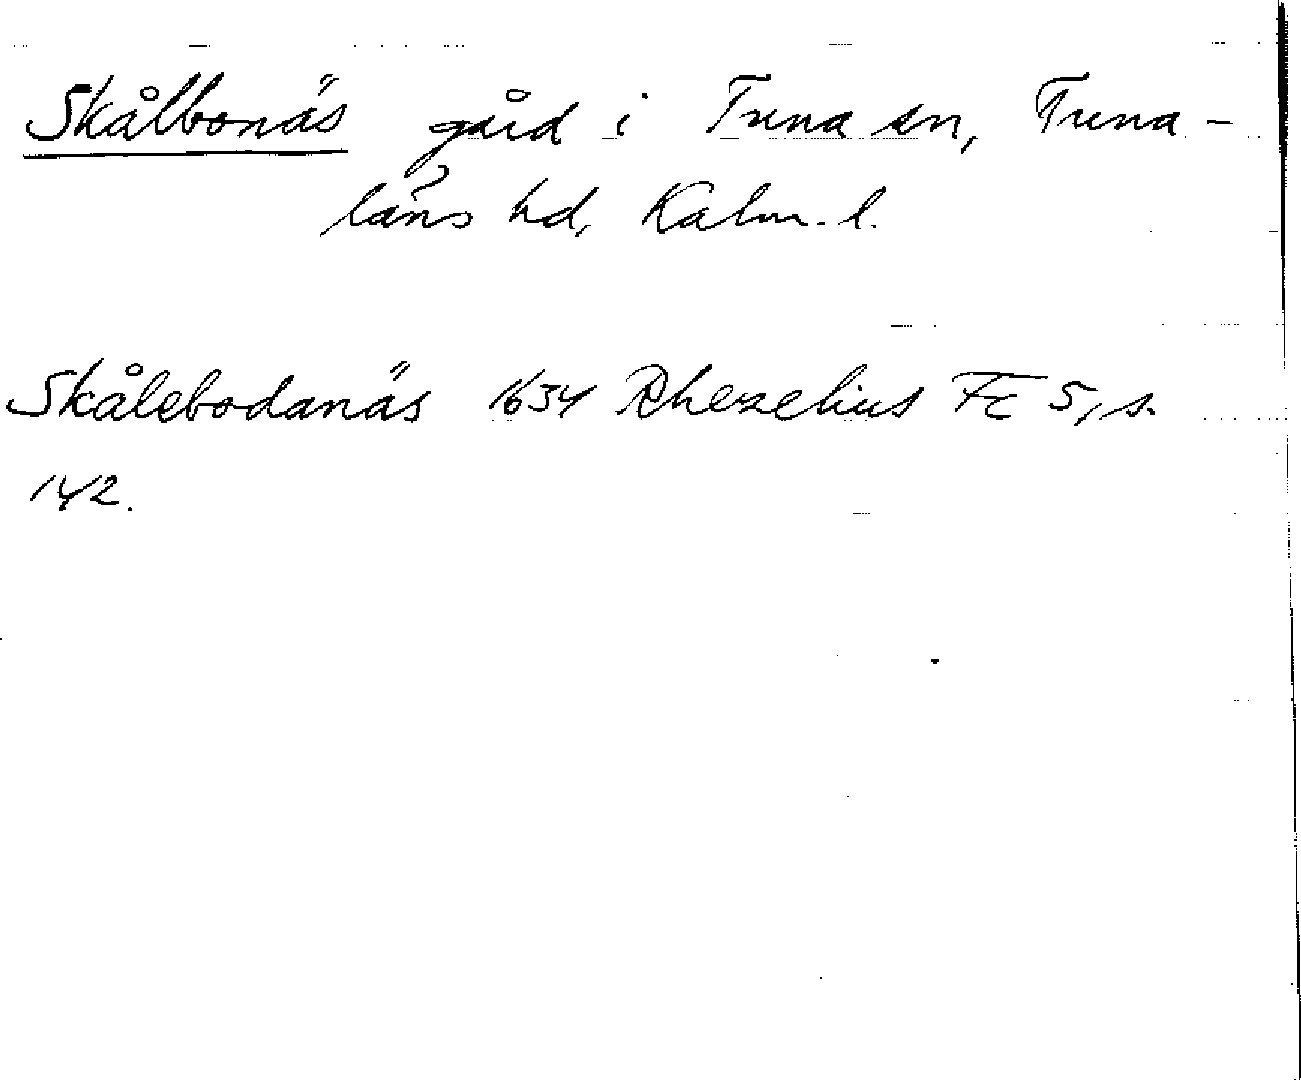 Skålbonäs gård i Tuna sn, Tuna-
läns hd, Kalm. l.
Skålebodanäs 1634 Rhezelius Fc 5, s.
142.